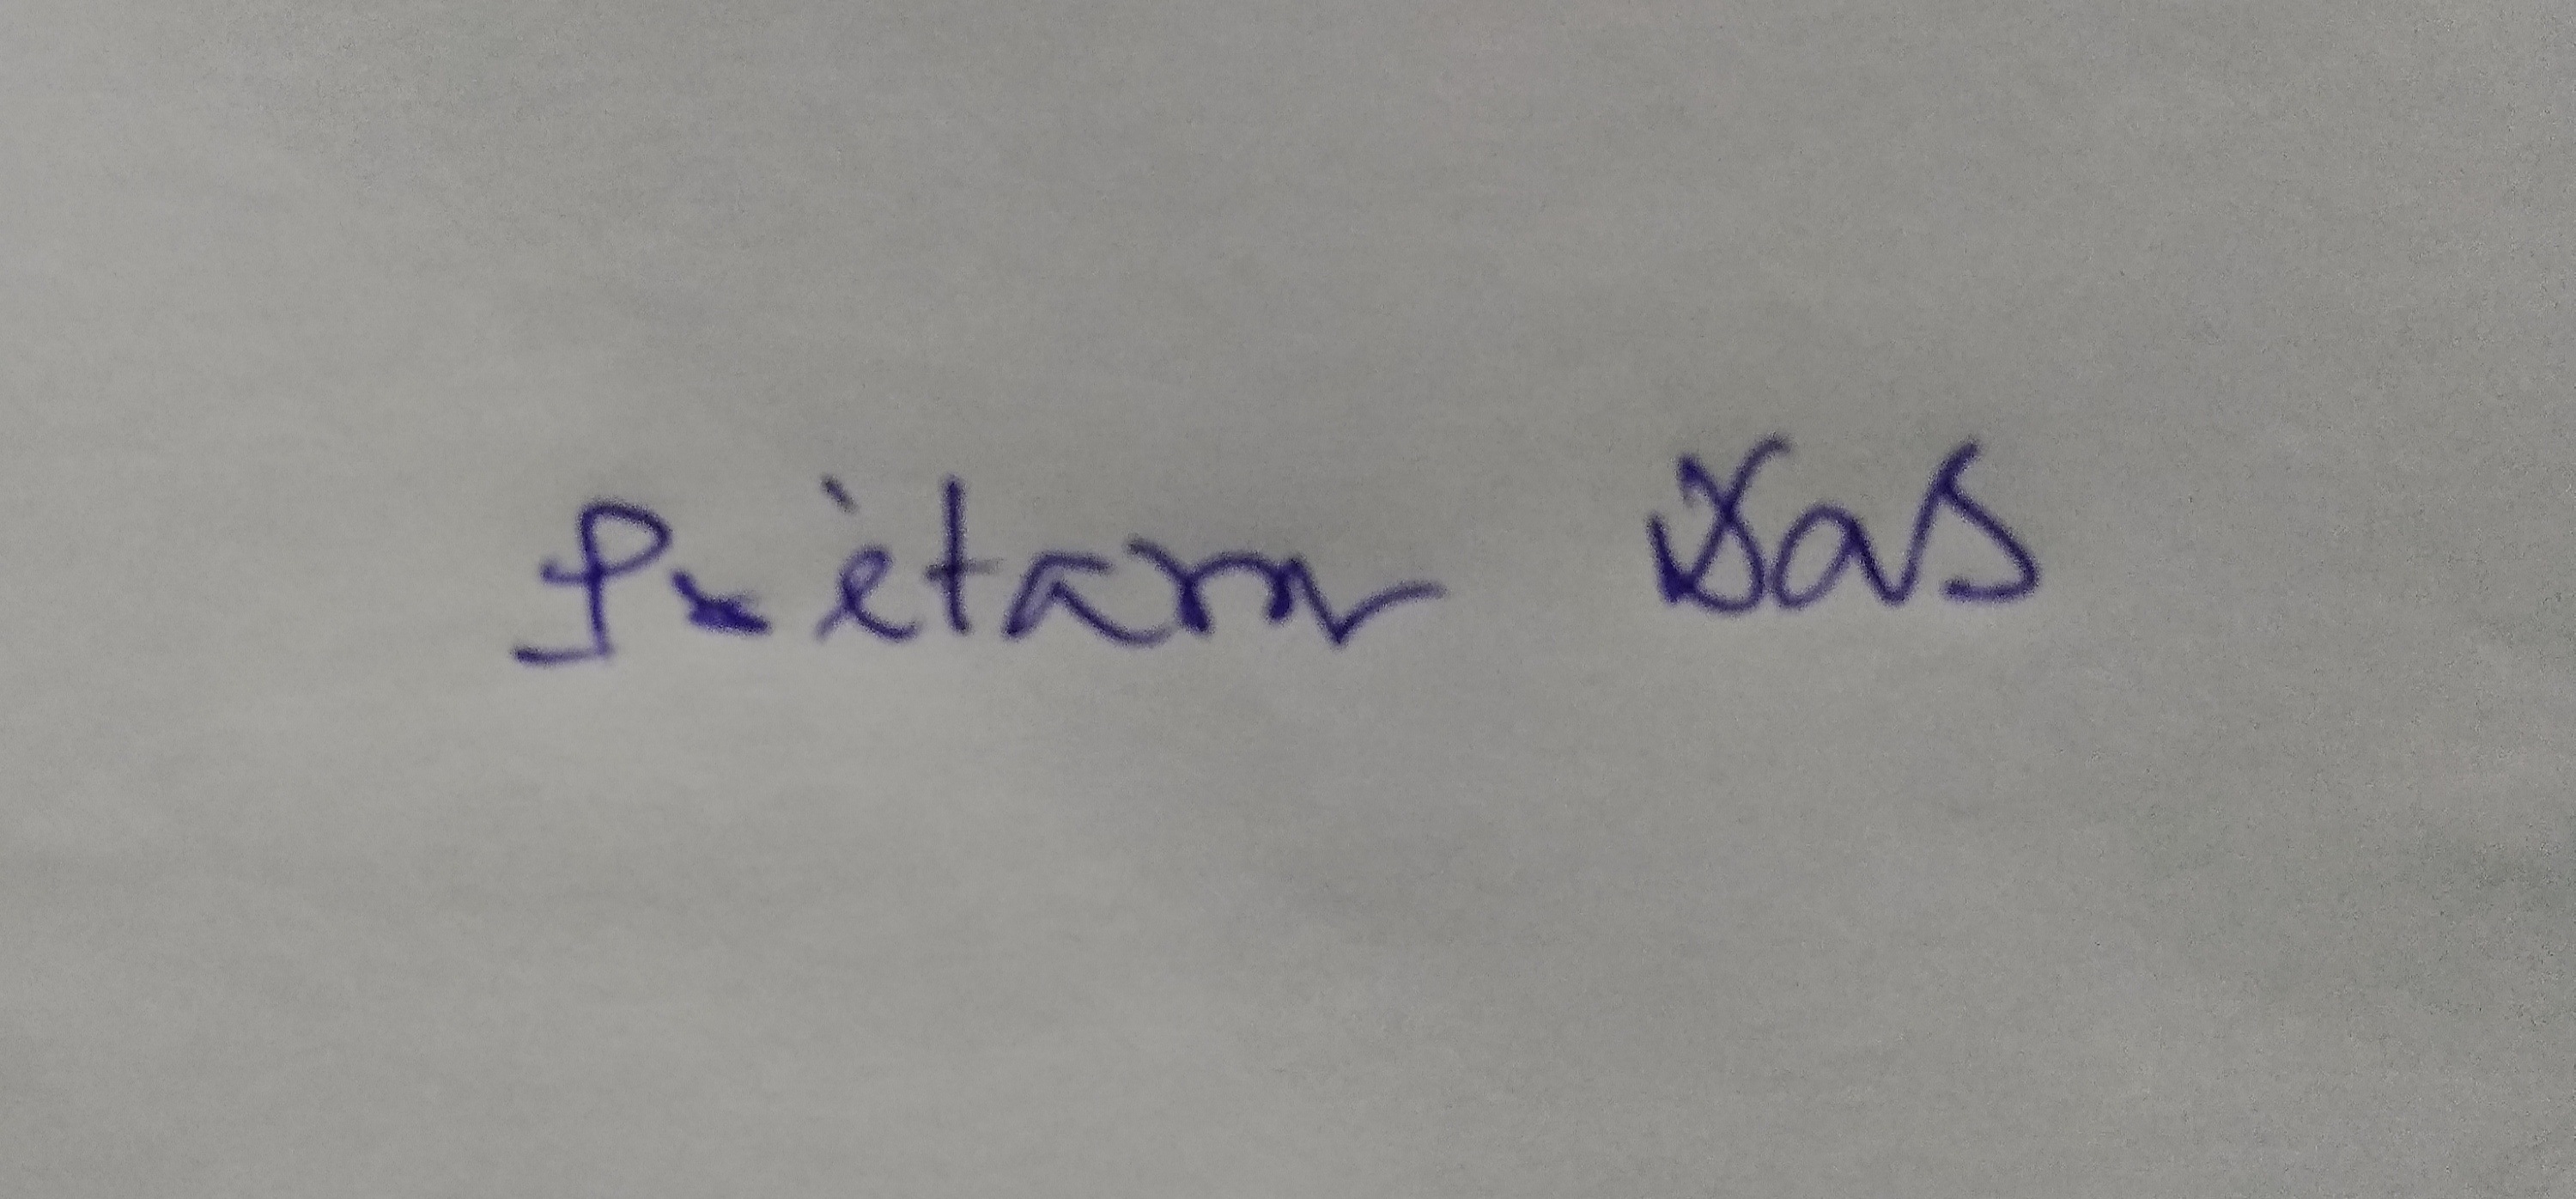 Pritam Das